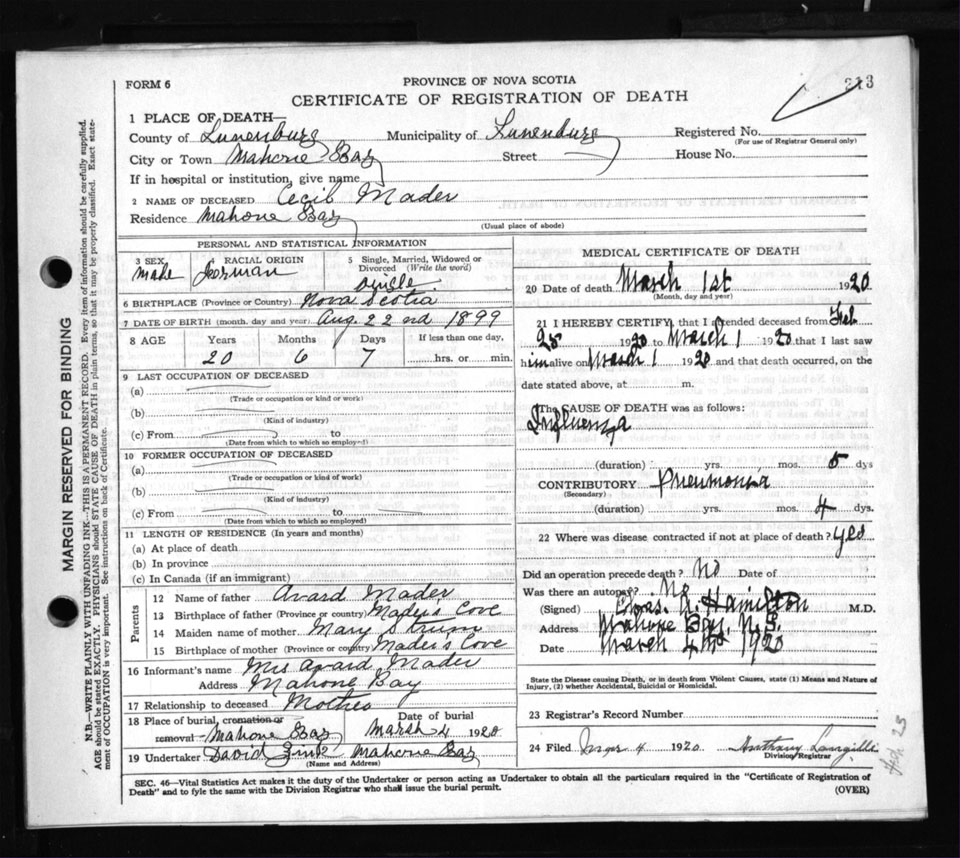 FORM 6
PROVINCE OF NOVA SCOTIA
213
CERTIFICATE OF REGISTRATION OF DEATH
1 PLACE OF DEATH—
County of Lunenburg Municipality of Lunenburg Registered No.
(For use of Registrar General only)
City or Town Mahone Bay Street House No.
If in hospital or institution, give name
2 NAME OF DECEASED Cecil Mader
Residence Mahone Bay
(Usual place of abode)
PERSONAL AND STATISTICAL INFORMATION
3 SEX RACIAL ORIGIN 5 Single, Married, Widowed or Divorced (Write the word)
Male German Single
6 BIRTHPLACE (Province or Country) Nova Scotia
7 DATE OF BIRTH (month, day and year) Aug. 22nd 1899
8 AGE Years Months Days If less than one day,
20 6 7 hrs. or min.
9 LAST OCCUPATION OF DECEASED
(a)
(Trade or occupation or kind or work)
(b)
(Kind of industry)
(c) From to
(Date from which to which so employed)
10 FORMER OCCUPATION OF DECEASED
(a)
(Trade or occupation or kind of work)
(b)
(Kind of industry)
(c) From to
(Date from which to which so employed)
11 LENGTH OF RESIDENCE (In years and months)
(a) At place of death
(b) In province
(c) In Canada (if an immigrant)
Parents
12 Name of father Avard Mader
13 Birthplace of father (Province or country) Maders Cove
14 Maiden name of mother Mary Strum
15 Birthplace of mother (Province or country) Maders Cove
16 Informant's name Mrs Avard Mader
Address Mahone Bay
17 Relationship to deceased Mother
18 Place of burial, cremation or removal Mahone Bay Date of burial March 4 1920
19 Undertaker David Zink Mahone Bay
(Name and Address)
MEDICAL CERTIFICATE OF DEATH
20 Date of death March 1st 1920
(Month, day and year)
21 I HEREBY CERTIFY, that I attended deceased from Feb
25 1920 to March 1 1920 that I last saw
him alive on March 1 1920 and that death occurred, on the
date stated above, at m.
The CAUSE OF DEATH was as follows:
Influenza
(duration) yrs. mos. 5 dys
CONTRIBUTORY Pneumonia
(Secondary)
(duration) yrs. mos. 4 dys.
22 Where was disease contracted if not at place of death? yes
Did an operation precede death? No Date of
Was there an autopsy? No
(Signed) Chas. A. Hamilton M.D.
Address Mahone Bay, N.S.
Date March 4th 1920
State the Disease causing Death, or in death from Violent Causes, state (1) Means and Nature of
Injury, (2) whether Accidental, Suicidal or Homicidal.
23 Registrar's Record Number
24 Filed 4 1920 Anthony Langille
Division Registrar
SEC. 46—Vital Statistics Act makes it the duty of the Undertaker or person acting as Undertaker to obtain all the particulars required in the "Certificate of Registration of
Death" and to fyle the same with the Division Registrar who shall issue the burial permit.
(OVER)
MARGIN RESERVED FOR BINDING
N.B.—WRITE PLAINLY WITH UNFADING INK—THIS IS A PERMANENT RECORD. Every item of information should be carefully supplied.
AGE should be stated EXACTLY. PHYSICIANS should STATE CAUSE OF DEATH in plain terms, so that it may be properly classified. Exact statement
of OCCUPATION is very important. See instructions on back of Certificate.